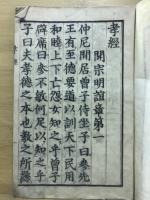 孝經
開宗明誼章第一
仲尼閒居曾子侍坐子曰參先
王有至德要道以訓天下民用
和睦上下亡怨女知之乎曾子
辟席曰參不敏何足以知之乎
子曰夫孝德之本也教之所繇